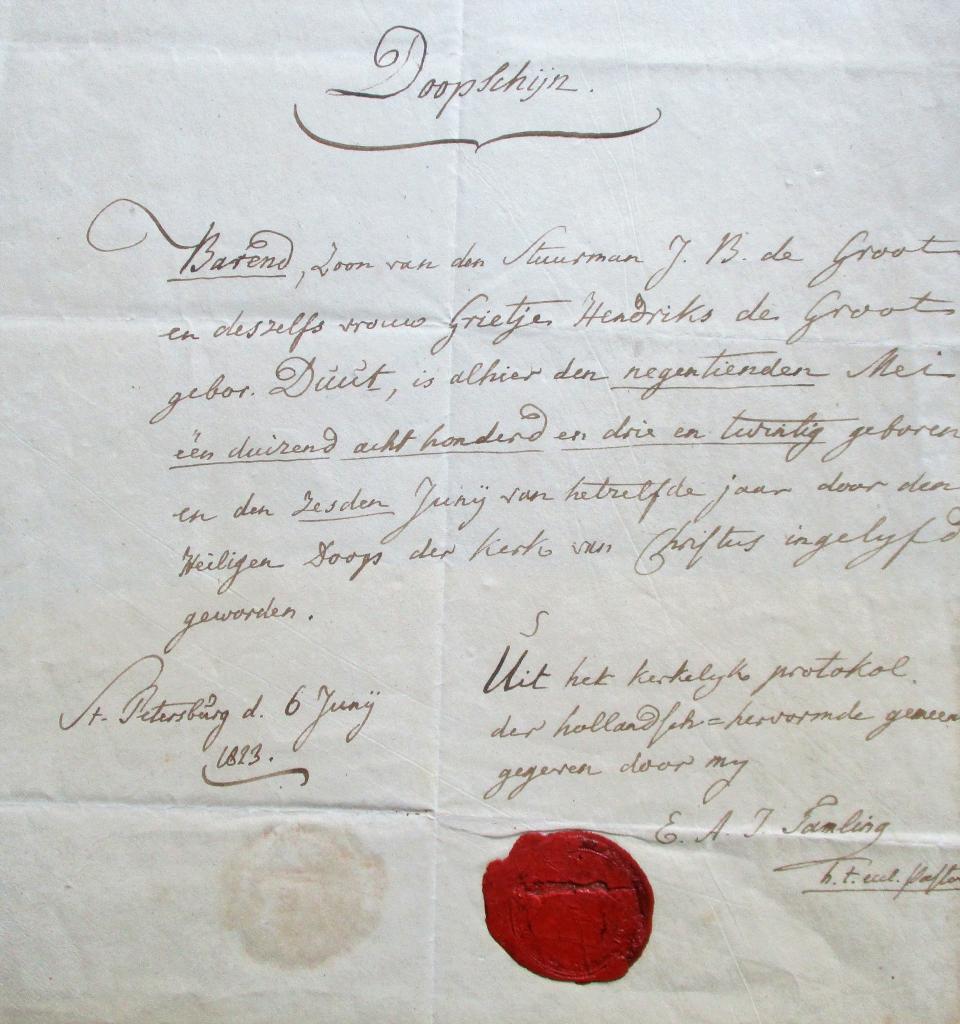 Doopschijn.
Barend, Zoon van den Stuurman J. B. de Groot
en deszelfs vrouw Grietje Hendriks de Groot
gebor. Duut, is alhier den negentienden Mei
één duizend acht honderd en drie en twintig geboren
en den zesden Junij van hetzelfde jaar door den
Heiligen Doop der Kerk van Christus ingelyfd
geworden.
St. Petersburg d. 6 Junij
1823.
Uit het kerkelyk protokol
der hollandsch=hervormde gemeen
gegeven door my
E. A. J. Tamling
h. t. eccl. Pasto